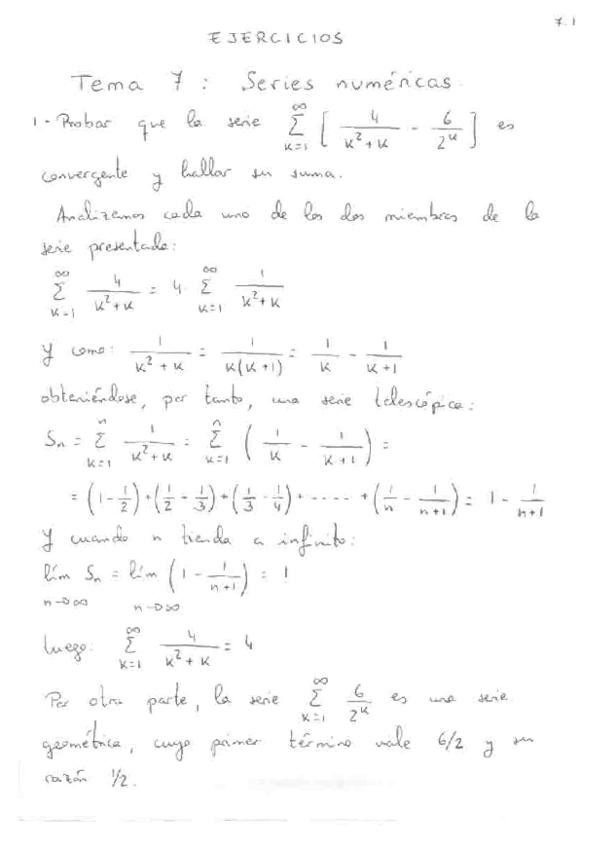 7.1
EJERCICIOS
Tema 7 : Series numéricas.
1- Probar que la serie ∑_{k=1}^{∞} [ 4/(k²+k) - 6/2^k ] es
convergente y hallar su suma.
Analizamos cada uno de los dos miembros de la
serie presentada:
∑_{k=1}^{∞} 4/(k²+k) = 4 · ∑_{k=1}^{∞} 1/(k²+k)
Y como: 1/(k²+k) = 1/(k(k+1)) = 1/k - 1/(k+1)
obteniéndose, por tanto, una serie telescópica:
Sn = ∑_{k=1}^{n} 1/(k²+k) = ∑_{k=1}^{n} ( 1/k - 1/(k+1) ) =
= (1-1/2)+(1/2-1/3)+(1/3-1/4)+.....+(1/n - 1/(n+1)) = 1 - 1/(n+1)
Y cuando n tienda a infinito:
lím_{n→∞} Sn = lím_{n→∞} (1 - 1/(n+1)) = 1
luego: ∑_{k=1}^{∞} 4/(k²+k) = 4
Por otra parte, la serie ∑_{k=1}^{∞} 6/2^k es una serie
geométrica, cuyo primer término vale 6/2 y su
razón 1/2.